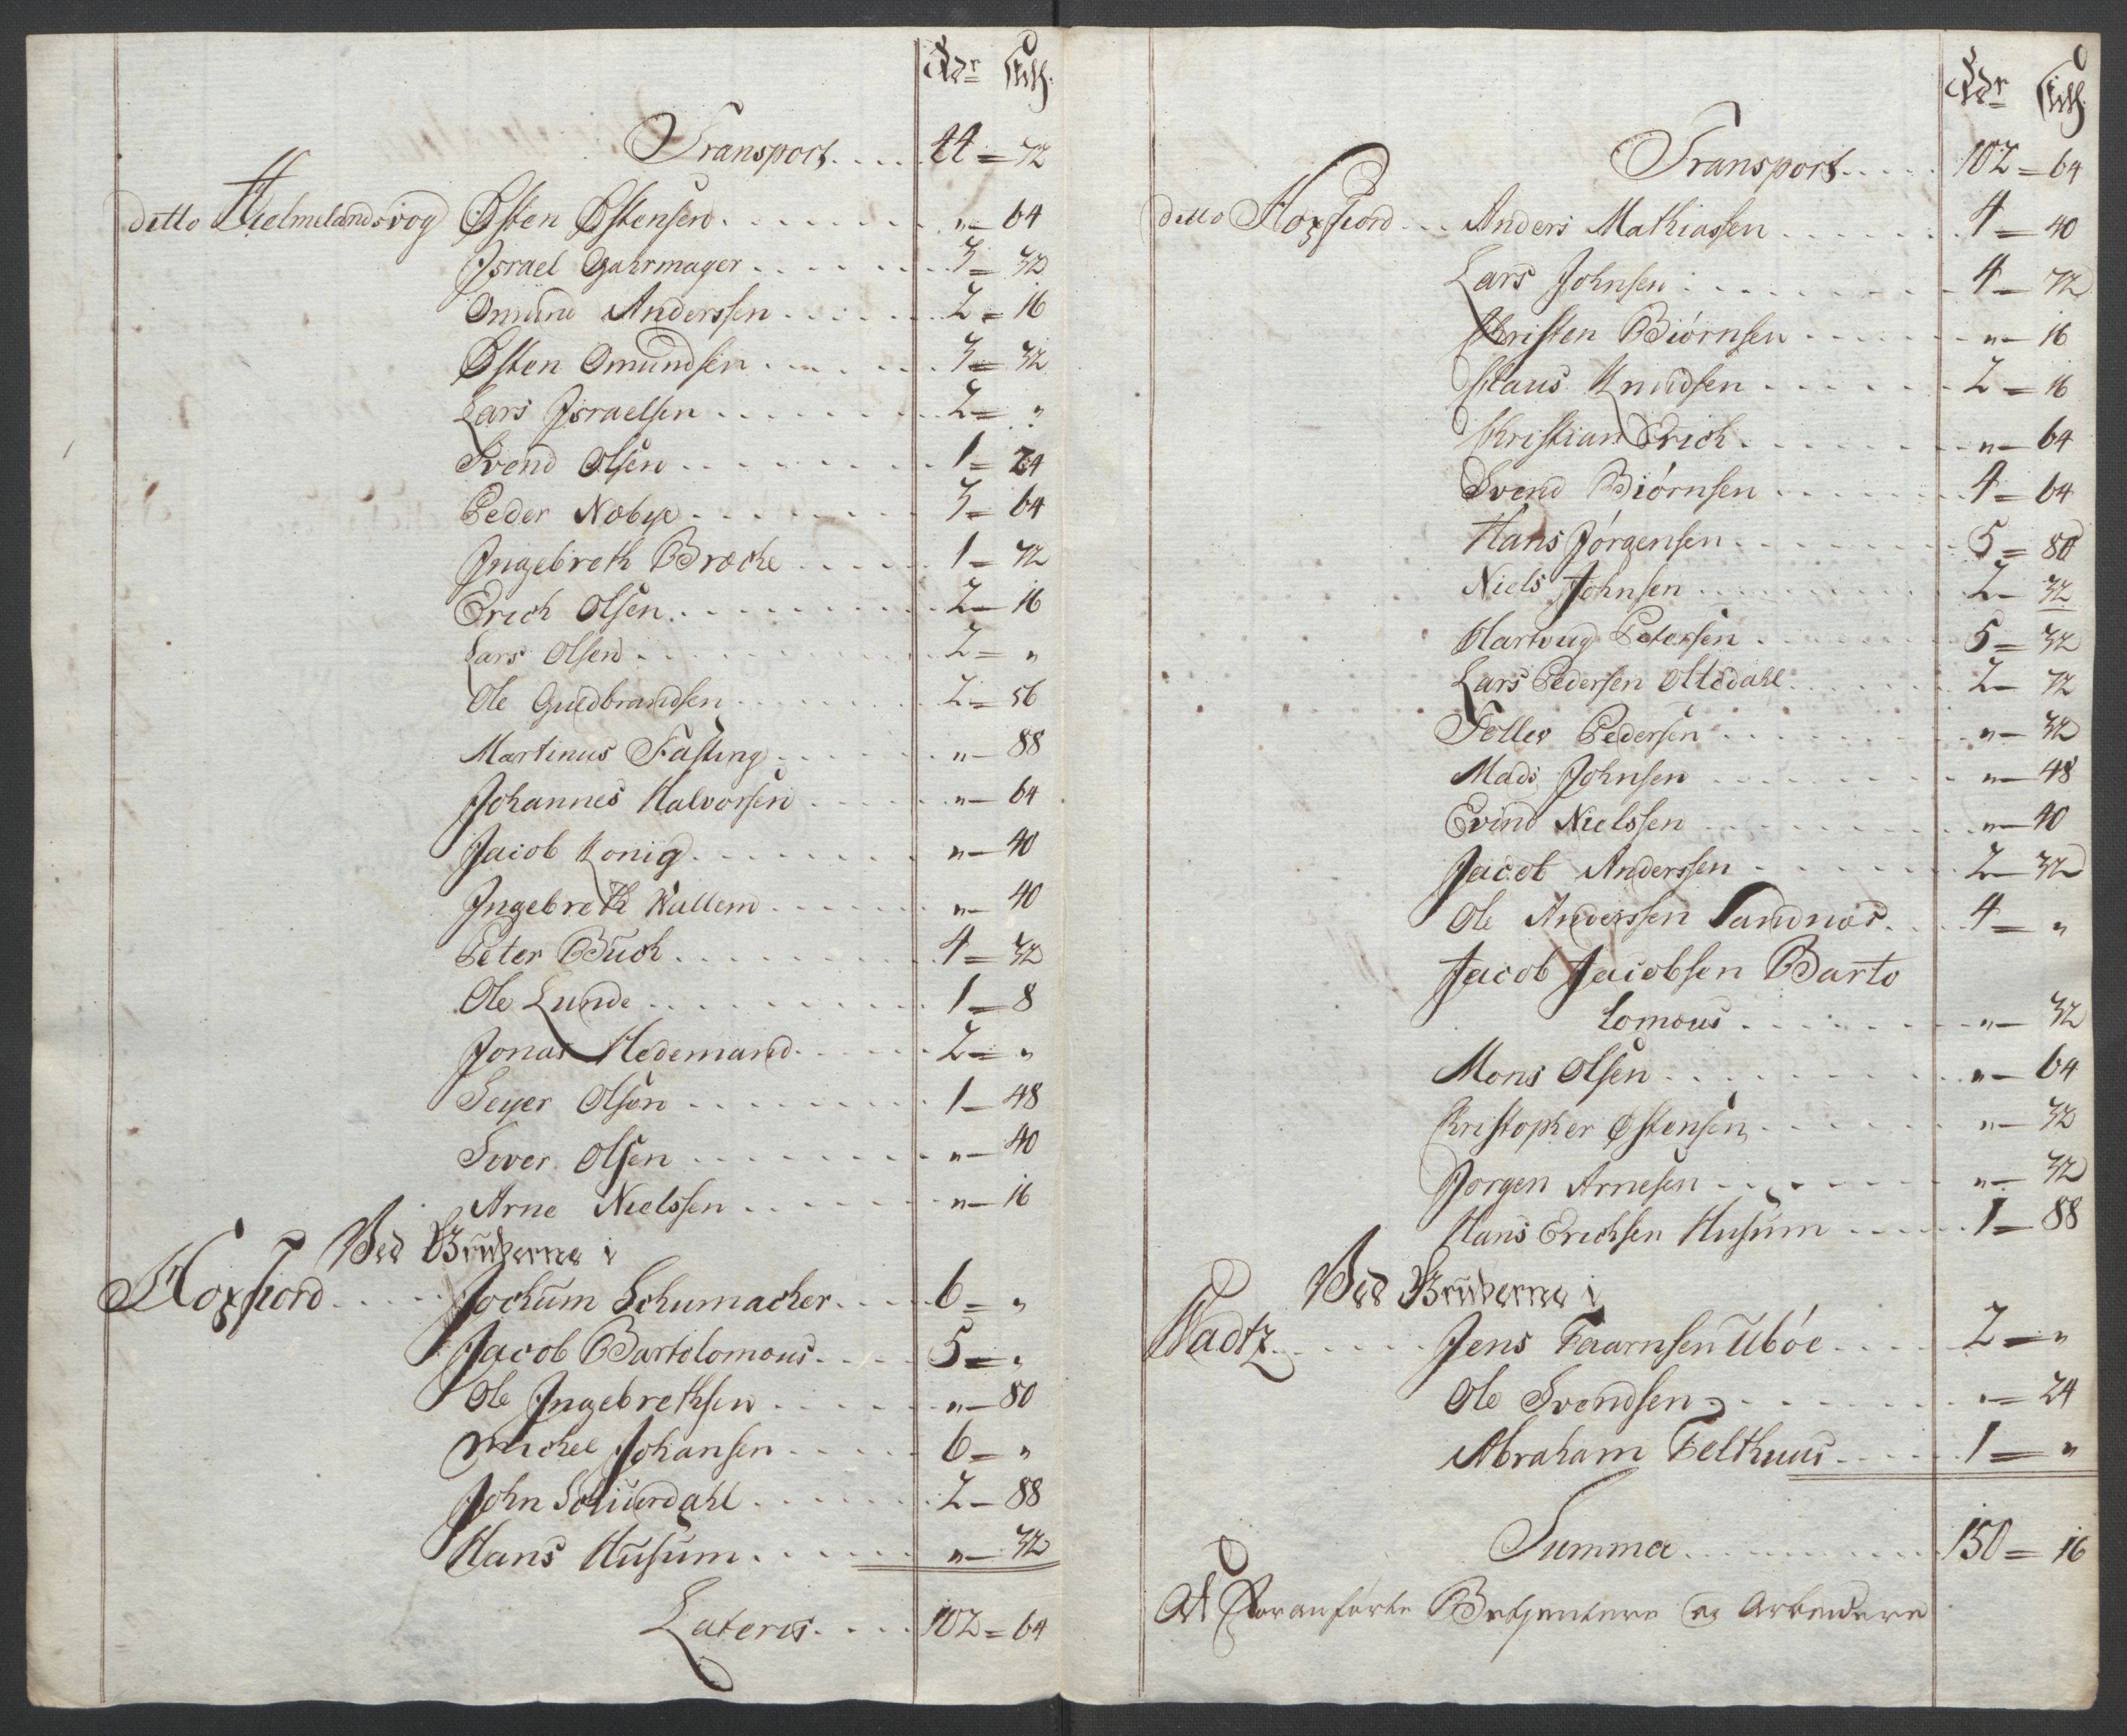 Rdr Skilh.
Transport.... 44 = 72
ditto Hielmelandsvog Østen Østensen........ „ — 64
Israel Gahrmager........ 3 = 32
Omund Anderssen...... 2 = 16
Østen Omundsen....... 3 = 32
Lars Israelsen........ 2 = „
Svend Olsen......... 1 = 24
Peder Nøbye........ 3 = 64
Ingebreth Bræcke..... 1 — 72
Erich Olsen......... 2 — 16
Lars Olsen.......... 2 = „
Ole Guldbrandsen........ 2 = 56
Martinus Fasting....... „ — 88
Johannes Halvorsen..... „ — 64
Jacob Konig........ „ — 40
Ingebreth Wallem...... „ — 40
Peter Buch.......... 4 = 32
Ole Lunde.......... 1 — 8
Jonas Hedemand..... 2 = „
Seyer Olsen........ 1 — 48
Siver Olsen......... „ — 40
Arne Nielssen....... „ — 16
Ved Brugerne i
Hoxfiord..... Jochum Schumacher.... 6 = „
Jacob Bartolomæus.... 5 = „
Ole Ingebrethsen...... „ — 80
Michel Johansen..... 6 — „
John Soluerdahl...... 2 — 88
Hans Husum...... „ — 32
Lateris.... 102 = 64
Rdr Skilh.
Transport..... 102 = 64
ditto Hoxfiord... Anders Mathiassen....... 4 — 40
Lars Johnsen......... 4 — 72
Christen Biørnsen....... „ — 16
Claus Knudsen....... 2 — 16
Christian Erich........ „ — 64
Svend Biørnsen....... 4 — 64
Hans Jørgensen....... 5 = 80
Niels Johnsen......... 2 — 32
Hartvug Petersen....... 5 = 32
Lars Pedersen Oltedahl...... 2 — 72
Toller Pedersen........ „ — 32
Mads Johnsen........ „ — 48
Evind Nielssen......... „ — 40
Jacob Anderssen....... 2 — 32
Ole Anderssen Sandnæs.... 4 — „
Jacob Jacobsen Barto
lomæus........ „ — 32
Mons Olsen......... „ — 64
Kristopher Østensen...... „ — 32
Jørgen Arnesen....... „ — 32
Hans Erichsen Husum..... 1 — 88
Ved Brugerne i
Wadtz...... Jens Faarnsen Ubøe.... 2 — „
Ole Svendsen....... „ — 24
Abraham Felthuus..... 1 — „
Summa......... 150 = 16
At Foranførte Betjentere og Arbeidere